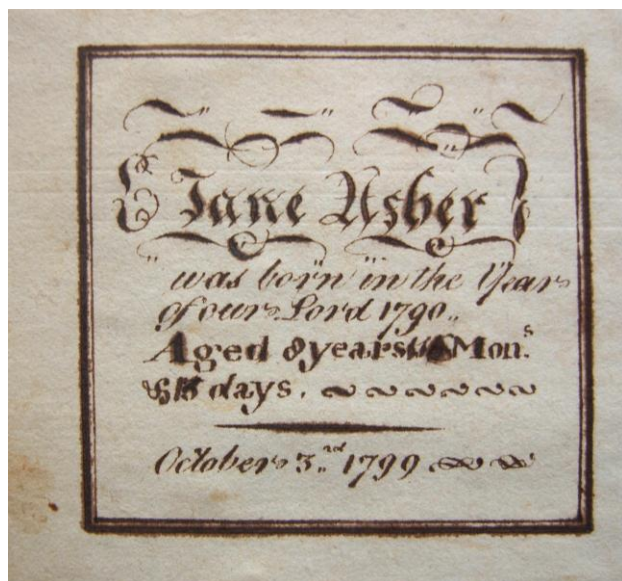 Jane Usher
was born in the Year
of our Lord 1790
Aged 8 years Mon.s
days.
October 3.rd 1799